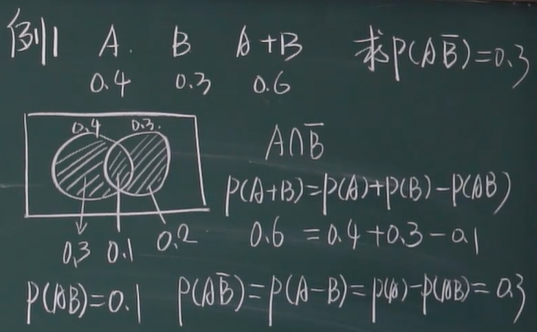 例1 A. B A+B 求P(AB̅)=0.3
0.4 0.3 0.6
0.4 0.3.
A∩B̅
P(A+B)=P(A)+P(B)-P(AB)
0.6 =0.4+0.3-0.1
0.3 0.1 0.2
P(AB)=0.1 P(AB̅)=P(A-B)=P(A)-P(AB)=0.3